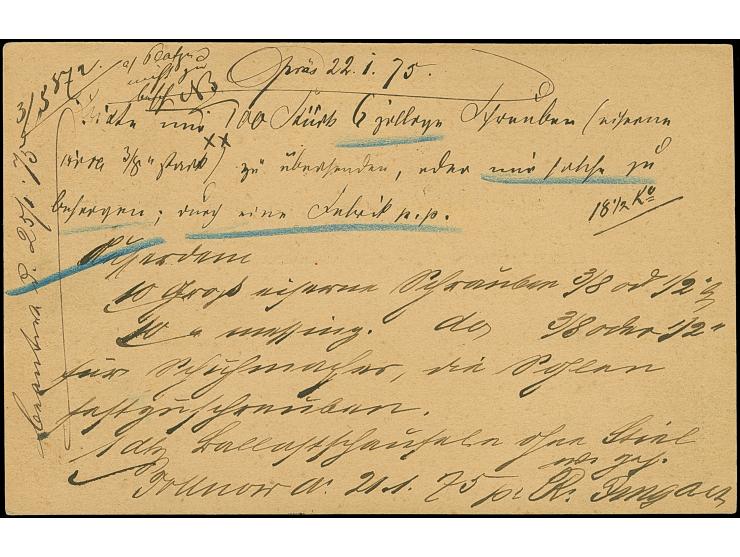 präs 22.1.75.
Bitte mir 100 Stück 6 zollege Schrauben (eiserne
circa 3/8" stark) zu übersenden, oder mir solche zu
besorgen; durch eine Fabrik p.p.
18 1/2 Ko
Außerdem
10 Groß eiserne Schrauben 3/8 od 1/2"
10 " messing. do 3/8 oder 1/2"
für Schuhmacher, die Sohlen
festzuschrauben.
1 dtz Ballastschaufeln ohne Stiel
Pollnow d. 21.1.75
3/5872.
25/1.75